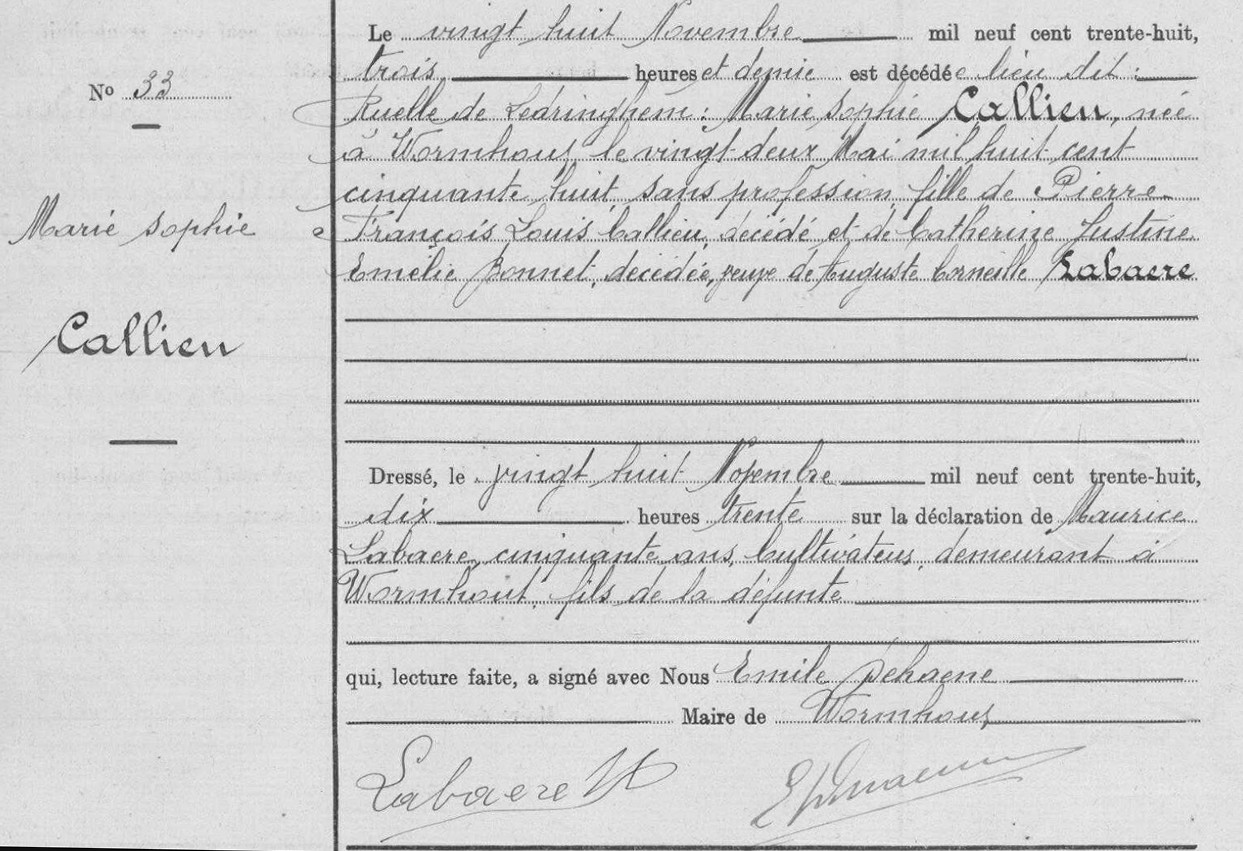 Le vingt huit Novembre mil neuf cent trente-huit,
trois, heures et demie est décédée lieu dit :
No 33
Ruelle de Ledringhem : Marie Sophie Callieu, née
à Wormhout, le vingt deux Mai mil huit cent
cinquante huit sans profession fille de Pierre
Marie Sophie
François Louis Callieu, décédé et de Catherine Justine
Emélie Bonnet, décédée, veuve de Auguste Corneille Labaere
Callieu
Dressé, le vingt huit Novembre mil neuf cent trente-huit,
dix heures trente sur la déclaration de Maurice
Labaere, cinquante ans, Cultivateur, demeurant à
Wormhout, fils de la défunte
qui, lecture faite, a signé avec Nous Emile Dehaene
Maire de Wormhout
Labaere M